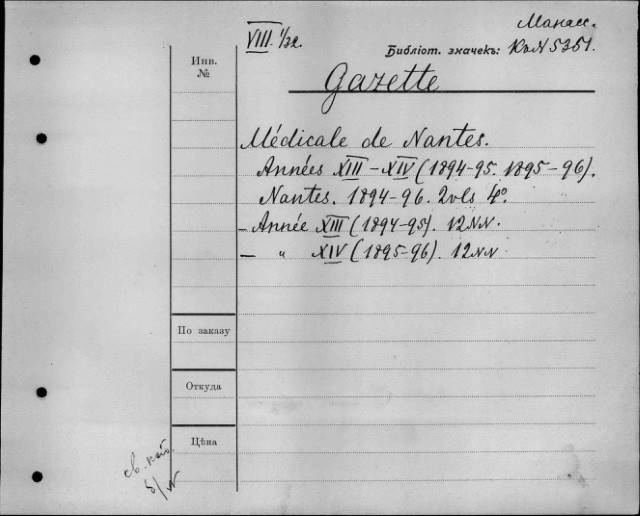 VIII. 1/32.
Манасс.
Библіот. значекъ: КъN 5351.
Инв.
№
Gazette
Médicale de Nantes.
Années XIII – XIV (1894-95. 1895-96).
Nantes. 1894-96. 2 vls 4°.
– Année XIII (1894-95). 12 NN.
– " XIV (1895-96). 12 NN
По заказу
Откуда
Цѣна
б/N